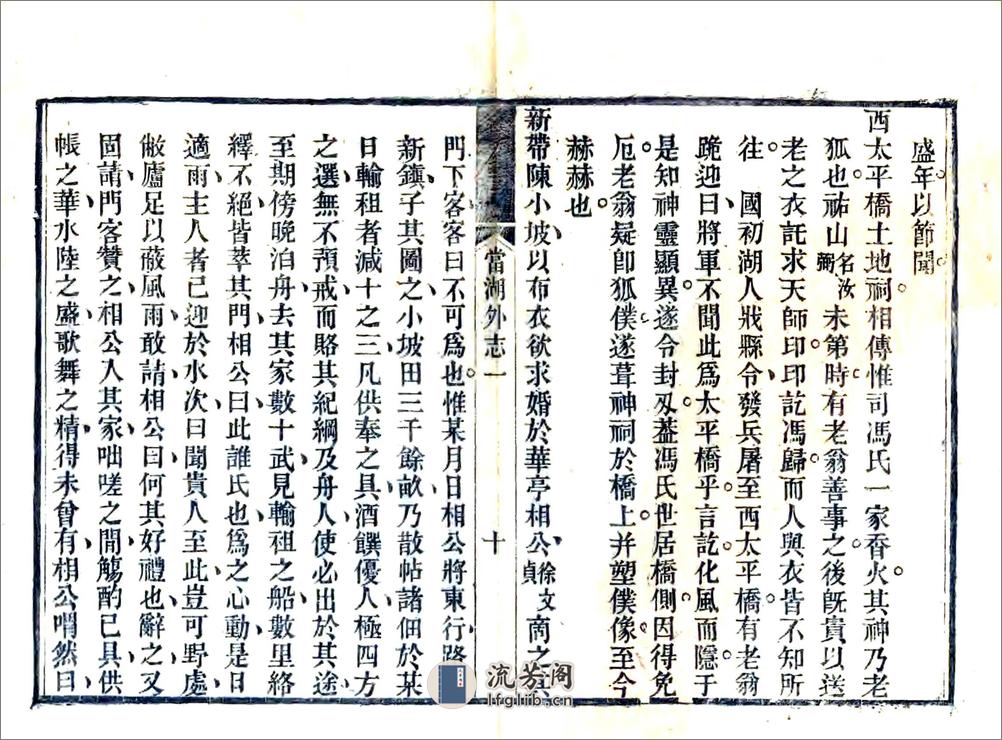 盛年以節聞
西太平橋土地祠相傳惟司馮氏一家香火其神乃老
狐也祐山名汝弼未第時有老翁善事之後旣貴以送
老之衣託求天師印印訖馮歸而人與衣皆不知所
往 國初湖人戕縣令發兵屠至西太平橋有老翁
跪迎曰將軍不聞此爲太平橋乎言訖化風而隱于
是知神靈顯異遂令封刄葢馮氏世居橋側因得免
厄老翁疑卽狐僕遂葺神祠於橋上并塑僕像至今
赫赫也
新帶陳小坡以布衣欲求婚於華亭相公徐文貞商之其
當湖外志一 十
門下客客曰不可爲也惟某月日相公將東行路
新鎭子其圖之小坡田三千餘畝乃散帖諸佃於某
日輸租者減十之三凡供奉之具酒饌優人極四方
之選無不預戒而賂其紀綱及舟人使必出於其途
至期傍晚泊舟去其家數十武見輸租之船數里絡
繹不絕皆萃其門相公曰此誰氏也爲之心動是日
適雨主人者已迎於水次曰聞貴人至此豈可野處
敝廬足以蔽風雨敢請相公曰何其好禮也辭之又
固請門客贊之相公入其家咄嗟之間觴酌已具供
帳之華水陸之盛歌舞之精得未曾有相公喟然曰
流芳阁
lfglib.cn